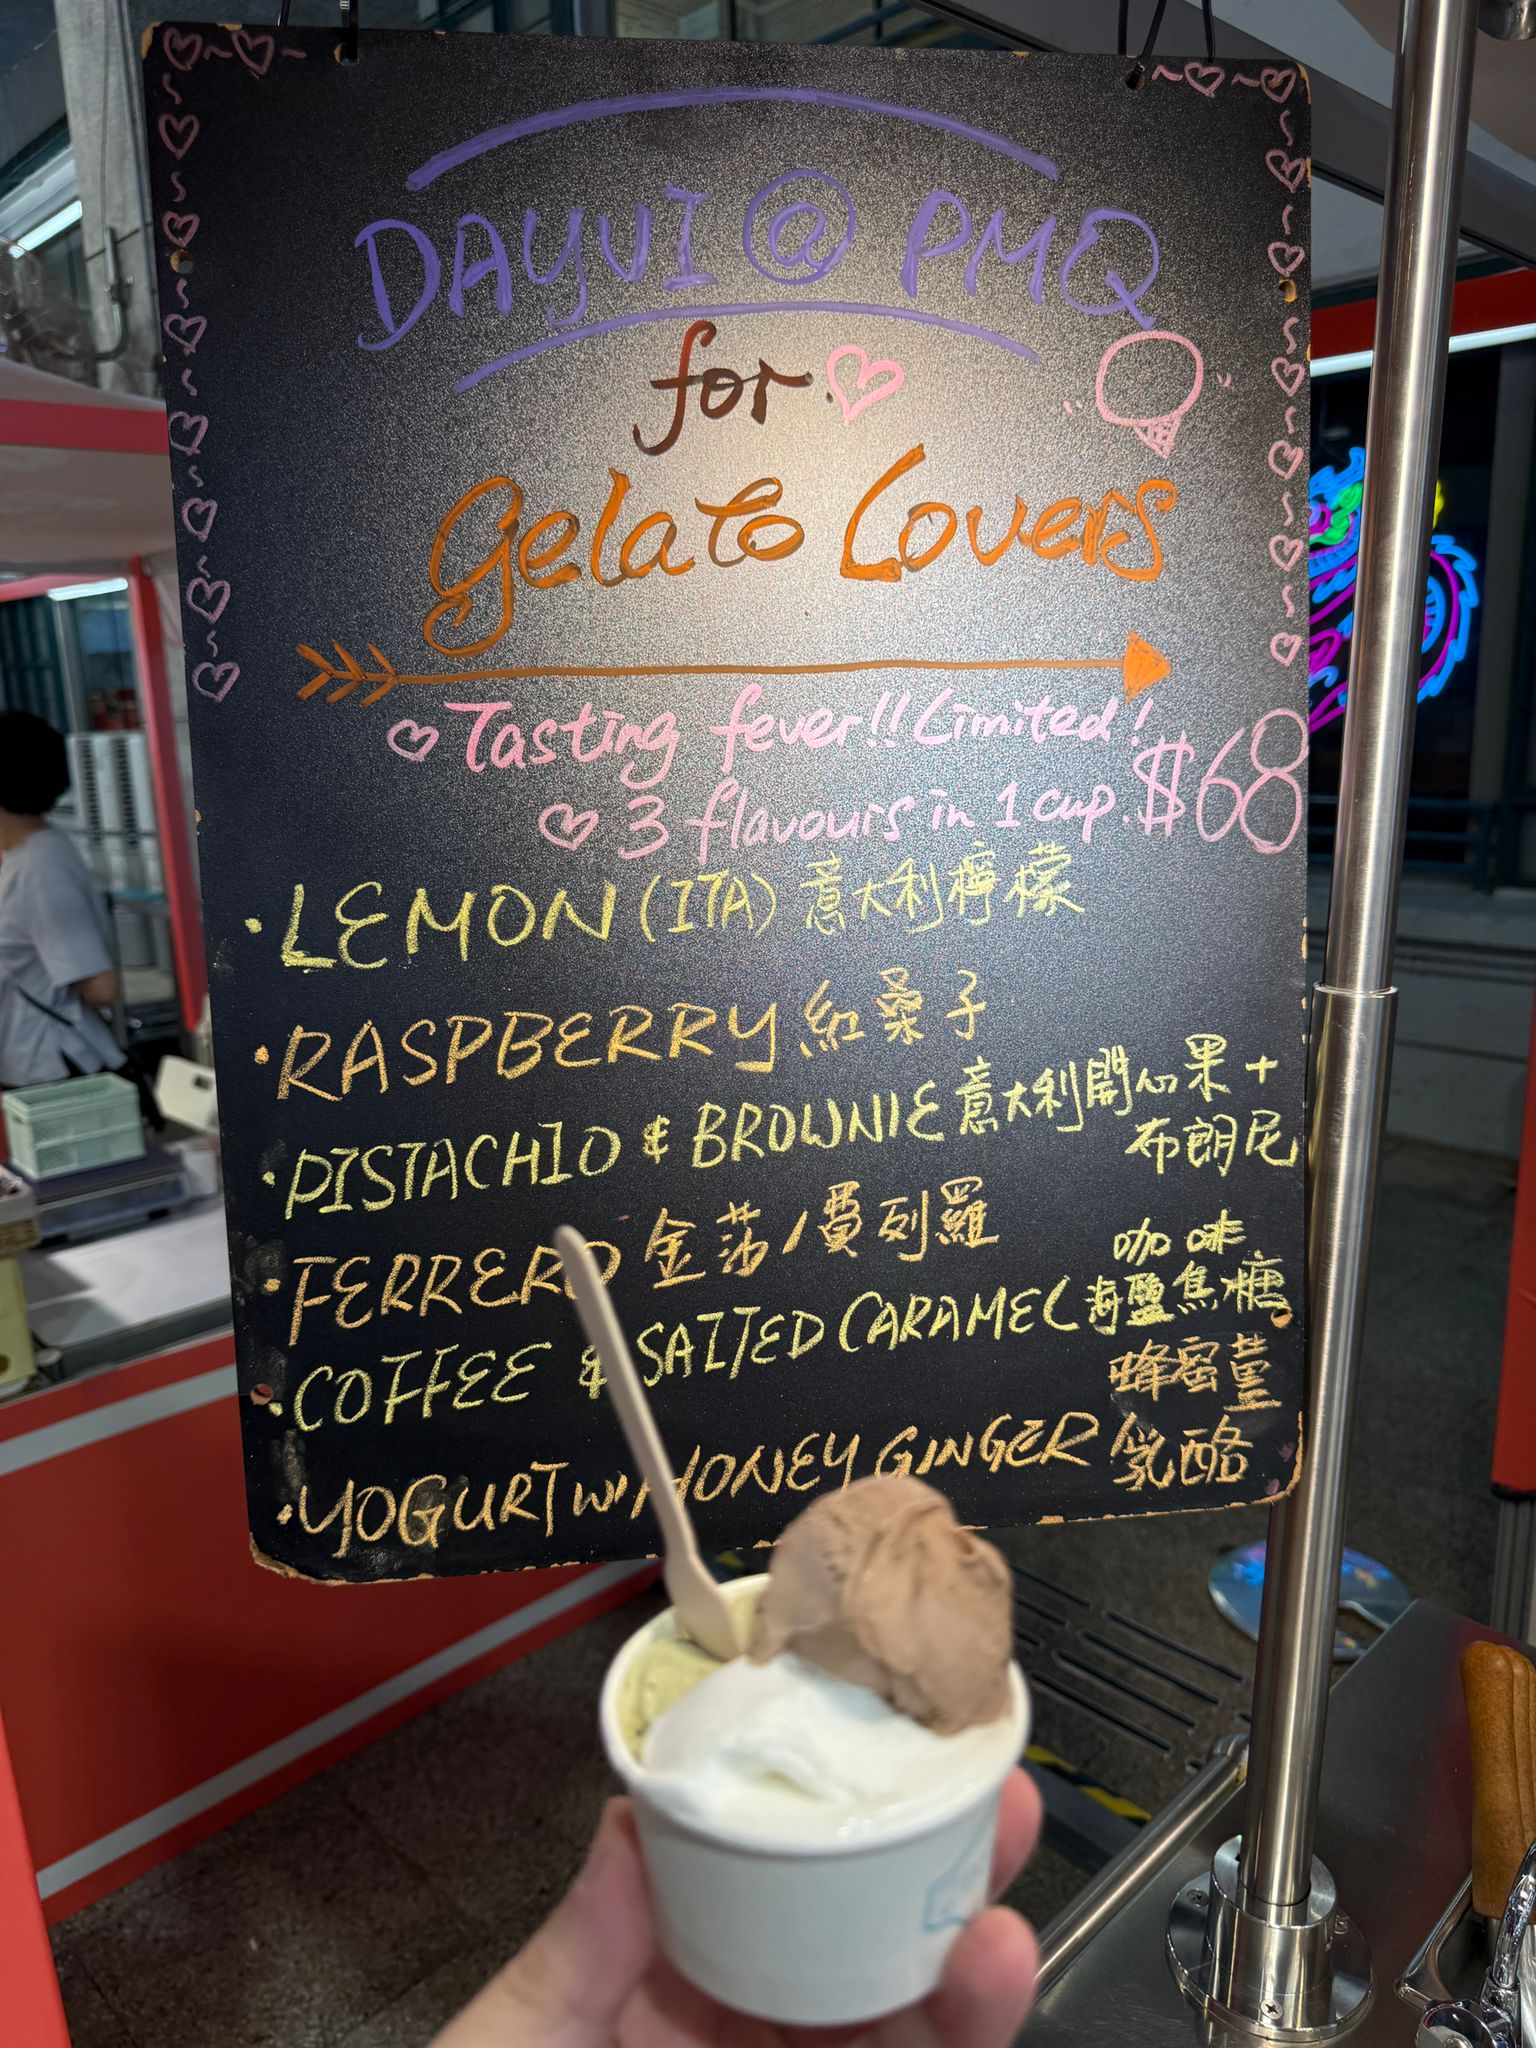 DAYUI @ PMQ
for
Gelato Lovers
Tasting fever!! Limited!
3 flavours in 1 cup. $68
· LEMON (ITA) 意大利檸檬
· RASPBERRY 紅桑子
· PISTACHIO & BROWNIE 意大利開心果 +
布朗尼
· FERRERO 金莎/費列羅
咖啡
· COFFEE & SALTED CARAMEL 海鹽焦糖
蜂蜜薑
· YOGURT W/ HONEY GINGER 乳酪